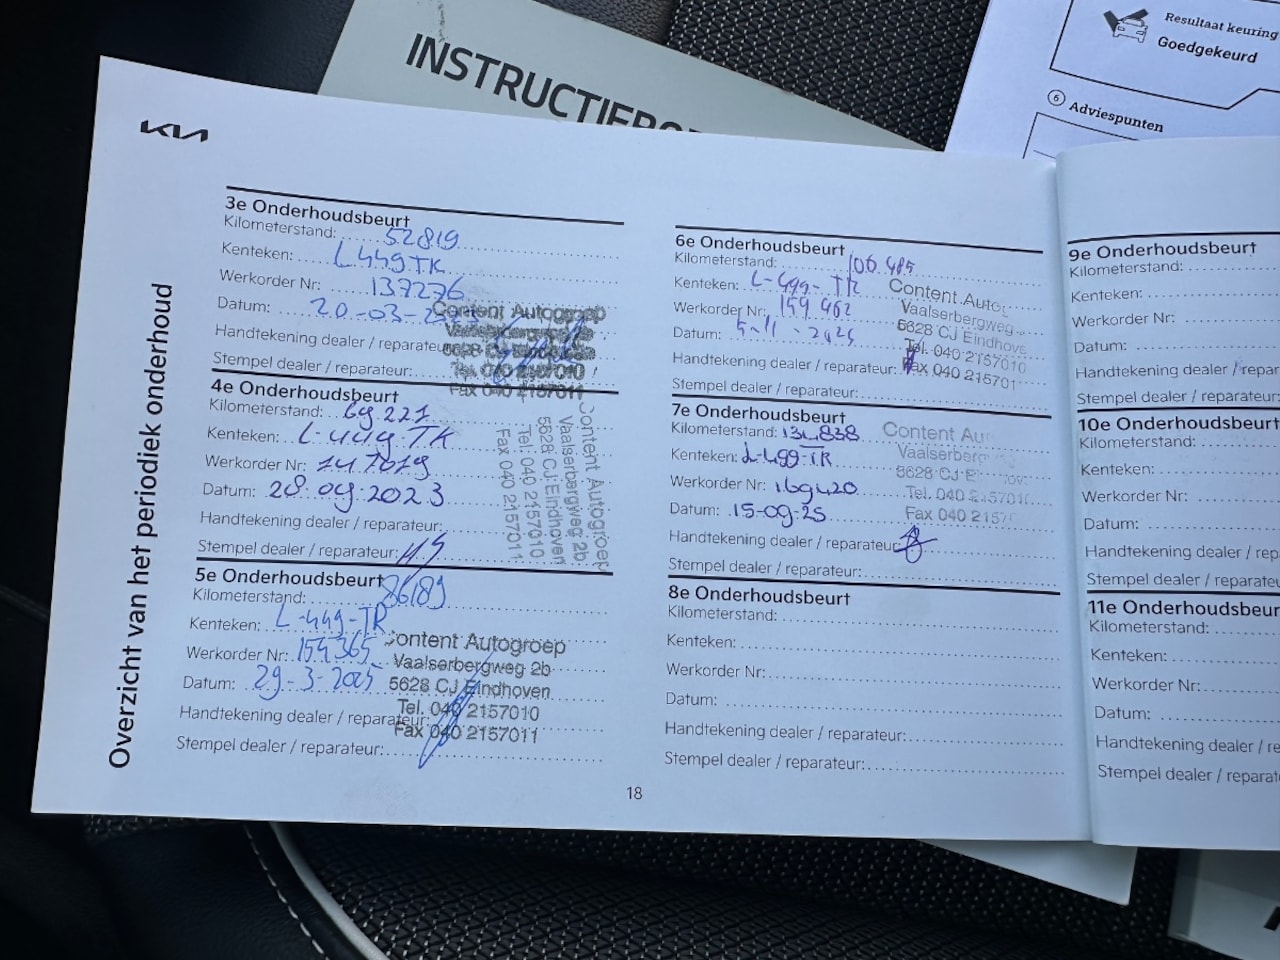 INSTRUCTIEBO
Resultaat keuring
Goedgekeurd
6 Adviespunten
KIA
Overzicht van het periodiek onderhoud
3e Onderhoudsbeurt
Kilometerstand: 52819
Kenteken: L449TK
Werkorder Nr: 137276
Datum: 20-03-
Handtekening dealer / reparateur
Stempel dealer / reparateur:
Content Autogroep
Vaalserbergweg 2b
5628 CJ Eindhoven
Tel. 040 2157010
Fax 040 2157011
4e Onderhoudsbeurt
Kilometerstand: 69221
Kenteken: L-449-TK
Werkorder Nr: 147019
Datum: 28.09.2023
Handtekening dealer / reparateur:
Stempel dealer / reparateur:
Content Autogroep
Vaalserbergweg 2b
5628 CJ Eindhoven
Tel: 040 2157010
Fax 040 2157011
5e Onderhoudsbeurt
Kilometerstand: 86189
Kenteken: L-449-TR
Werkorder Nr: 154365
Datum: 29-3-2025
Handtekening dealer / reparateur:
Stempel dealer / reparateur:
Content Autogroep
Vaalserbergweg 2b
5628 CJ Eindhoven
Tel. 040 2157010
Fax 040 2157011
6e Onderhoudsbeurt
Kilometerstand: 106.485
Kenteken: L-499-TR
Werkorder Nr: 159.462
Datum: 5-11-
Handtekening dealer / reparateur:
Stempel dealer / reparateur:
Content Auto
Vaalserbergweg
5628 CJ Eindhove
Tel. 040 2157010
Fax 040 215701
7e Onderhoudsbeurt
Kilometerstand: 131.838
Kenteken: L-499-TR
Werkorder Nr: 169420
Datum: 15-09-25
Handtekening dealer / reparateur
Stempel dealer / reparateur:
Content Au
Vaalserbergweg
5628 CJ E
Tel. 040 2157010
Fax 040 2157
8e Onderhoudsbeurt
Kilometerstand:
Kenteken:
Werkorder Nr:
Datum:
Handtekening dealer / reparateur:
Stempel dealer / reparateur:
18
9e Onderhoudsbeurt
Kilometerstand:
Kenteken:
Werkorder Nr:
Datum:
Handtekening dealer / repar
Stempel dealer / reparateur:
10e Onderhoudsbeurt
Kilometerstand:
Kenteken:
Werkorder Nr:
Datum:
Handtekening dealer / rep
Stempel dealer / reparateur
11e Onderhoudsbeur
Kilometerstand:
Kenteken:
Werkorder Nr:
Datum:
Handtekening dealer / re
Stempel dealer / reparat